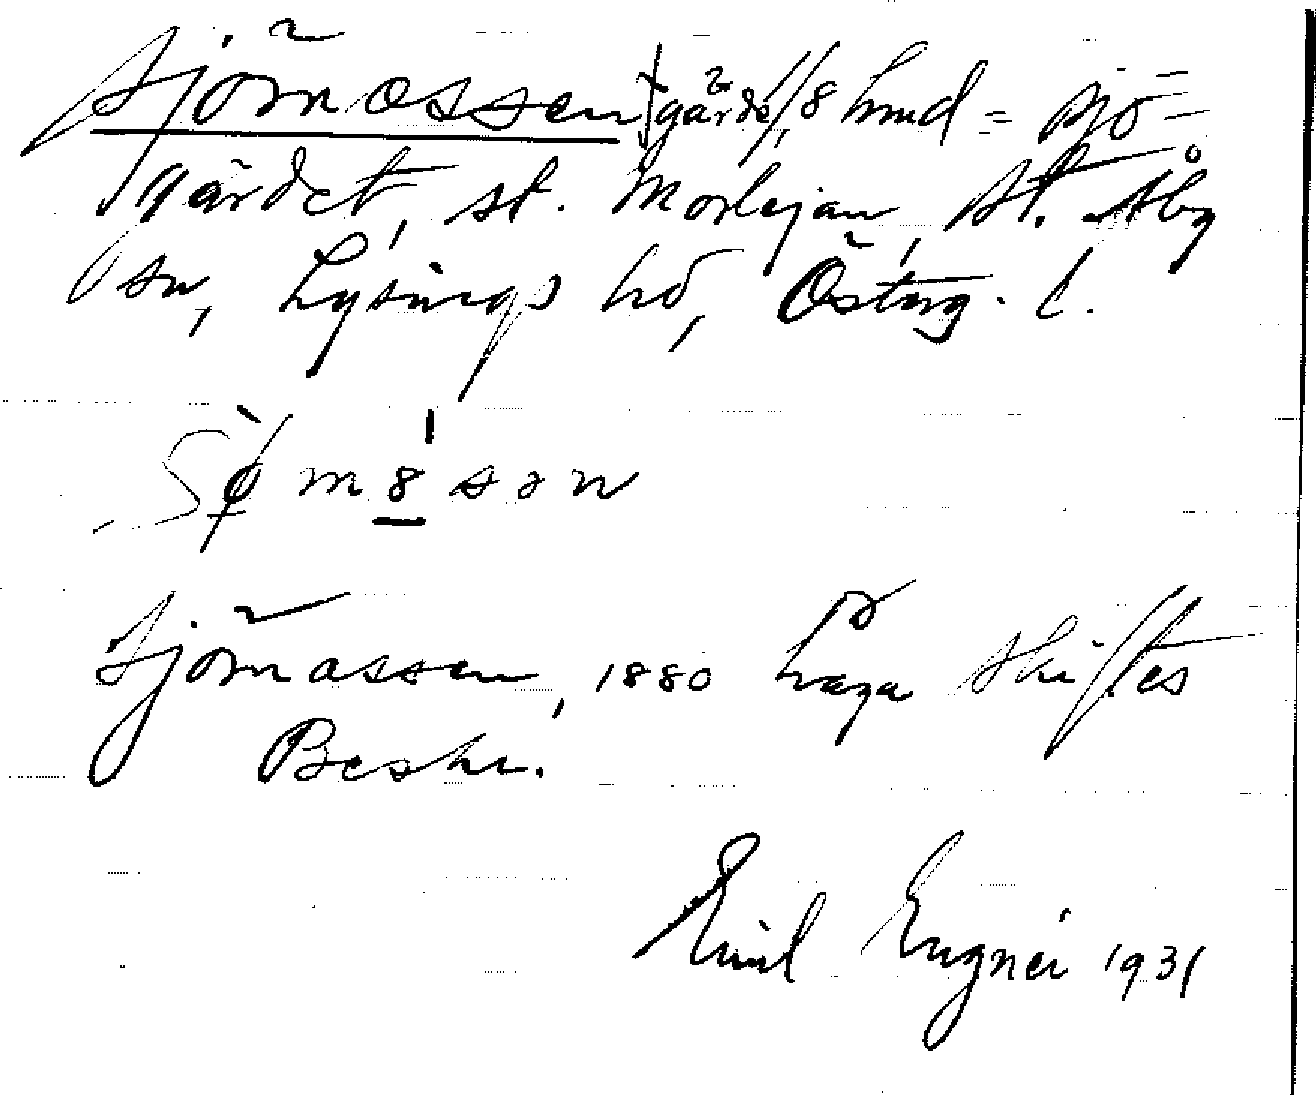 Sjömossen, gärde, 8 hmd = Sjö-
gärdet, st. Morlejan, St. Åby
sn, Lysings hd, Österg. l.
Sjömossen, 1880 Laga Skiftes
Beskr.
Emil Eugnér 1931